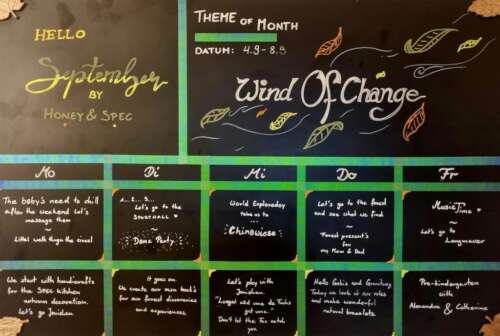 HELLO
September
BY
HONEY & SPEC
THEME OF MONTH
DATUM: 4.9-8.9
Wind Of Change
Mo
Di
Mi
Do
Fr
The baby's need to chill
after the weekend let's
massage them
~
Littel walk thugs the circel
1... 2... 3...
Let's go to the
SPORTHALL
~
Dance Party
World Exploreday
take us to
~
Chinawiese
Let's go to the forest
and see what we find
~
Forest present's
for
my Mom & Dad
Music Time
~
Let's go to
Langenauer
We start with handicrafts
for the SPEC kitchen
autumn decoration.
Let's go Jonidun
It goes on
We create our own book's
for our forest discoveries
and experiences
Let's play with
Jonidun
get one."
Don't let the Fox catch
you
Hello Gabis and
Today we look at our roles
and make wonderful
natural bracelets
Pre-kindergarten
with
Alexandra & Catherina